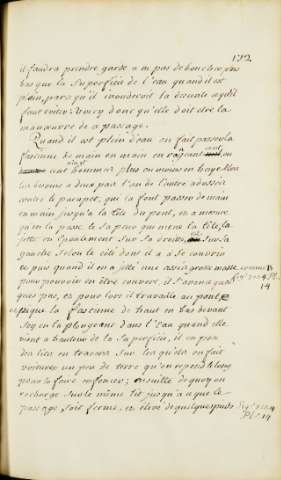 172.
il faudra prendre garde a ne pas de
bas que la superficie de l'eau quand il est
plain, parce qu'il inonderoit la descente qu'il
faut eviter. Voicy donc qu'elle doit etre la
manoeuvre de ce passage.
Quand il est plein d'eau on fait passer la
fascine de main en main en
cent hommes plus ou moins en haye
les uns a deux pas l'un de l'autre adossés
contre le parapet, qui la font passer de main
en main jusqu'a la tete du pont, et a mesure
qu'on la passe le sapeur qui mene la tête, la
jette également sur sa droite, et sur sa
gauche, selon le côté dont il a a se couvrir
et puis quand il en a jetté une assés grosse masse comme B
pour pouvoir en être couvert, il s'arrange
que pas, et pour lors il travaille au pont
et pique la fascine de haut en bas devant
soy en la plongeant dans l'eau quand elle
vient a hauteur de la superficie, il en pose
des lits en travers sur lesquels on fait
un peu de terre qu'on repend
pour la faire enfoncer; ensuitte de quoy on
recharge sur le même lit jusqu'a ce que le
passage soit ferme, et élevé de quelques pieds
Pl.
14
Pl. 14